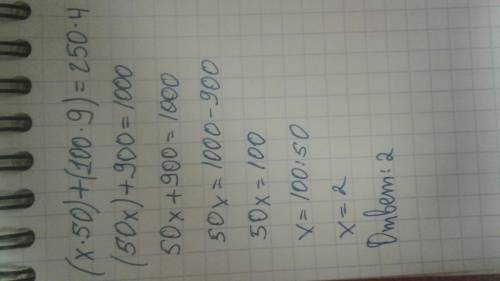 (x·50)+(100·9)=250·4
(50x)+900=1000
50x+900=1000
50x=1000-900
50x=100
x=100:50
x=2
Ответ: 2